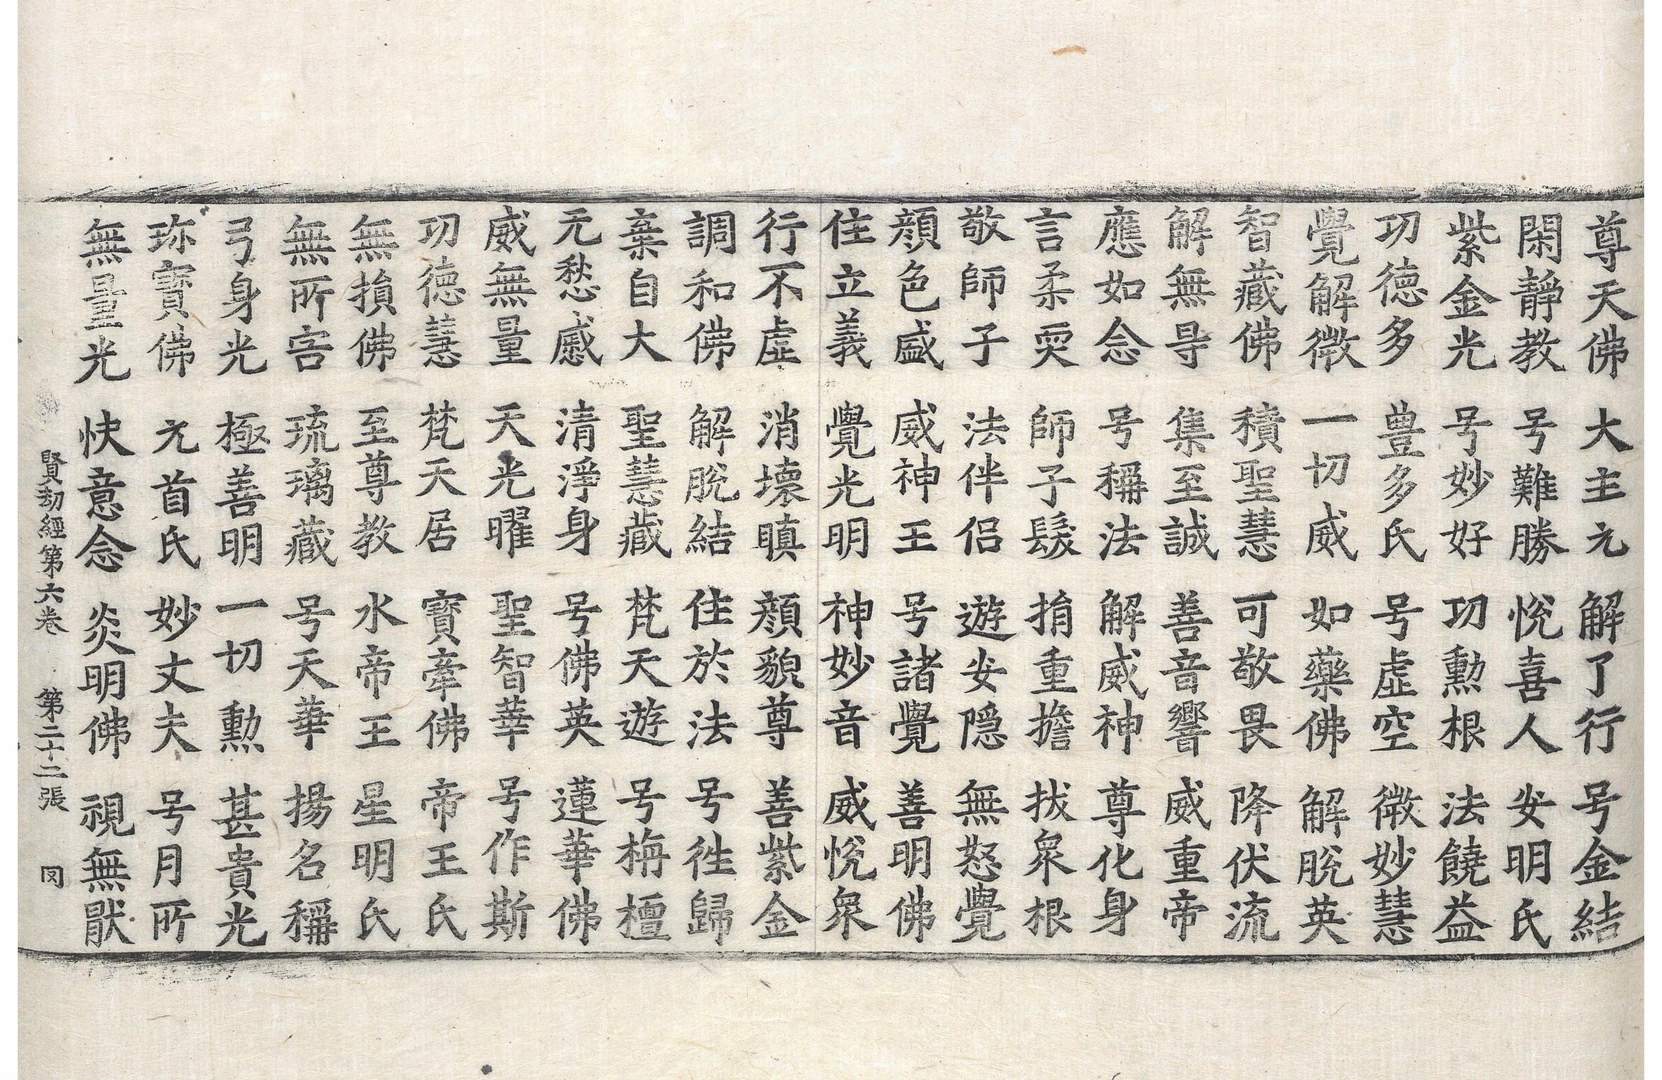 尊天佛 大主元 解了行 号金結
閑靜教 号難勝 悅喜人 安明氏
紫金光 号妙好 功勳根 法饒益
功德多 豊多氏 号虛空 微妙慧
覺解微 一切威 如藥佛 解脫英
智藏佛 積聖慧 可敬畏 降伏流
解無㝵 集至誠 善音響 威重帝
應如念 号稱法 解威神 尊化身
言柔耎 師子髮 捐重擔 拔衆根
敬師子 法伴侶 遊安隱 無怒覺
顔色盛 威神王 号諸覺 善明佛
住立義 覺光明 神妙音 威悅衆
行不虛 消壞瞋 顔貌尊 善紫金
調和佛 解脫結 住於法 号徃歸
棄自大 聖慧藏 梵天遊 号栴檀
无愁慼 清淨身 号佛英 蓮華佛
威無量 天光曜 聖智華 号作斯
功德慧 梵天居 寶牽佛 帝王氏
無損佛 至尊教 水帝王 星明氏
無所害 琉璃藏 号天華 揚名稱
弓身光 極善明 一切勳 甚貴光
珎寶佛 元首氏 妙丈夫 号月所
無量光 快意念 炎明佛 視無猒
賢劫經第六卷 第二十二張 罔